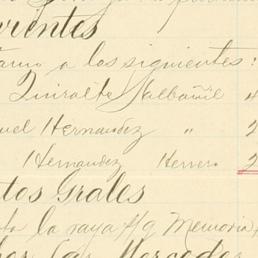 rrientes
tamo a los siguientes:
Quiralte Jalbañil 4
uel Hernandez " 2
Hernandez Herrero 2
tos Grales
la raya Hg Memoria
por las Mercedes